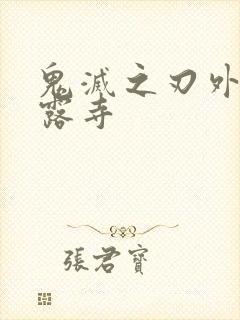 鬼滅之刃外
露寺
張君寶